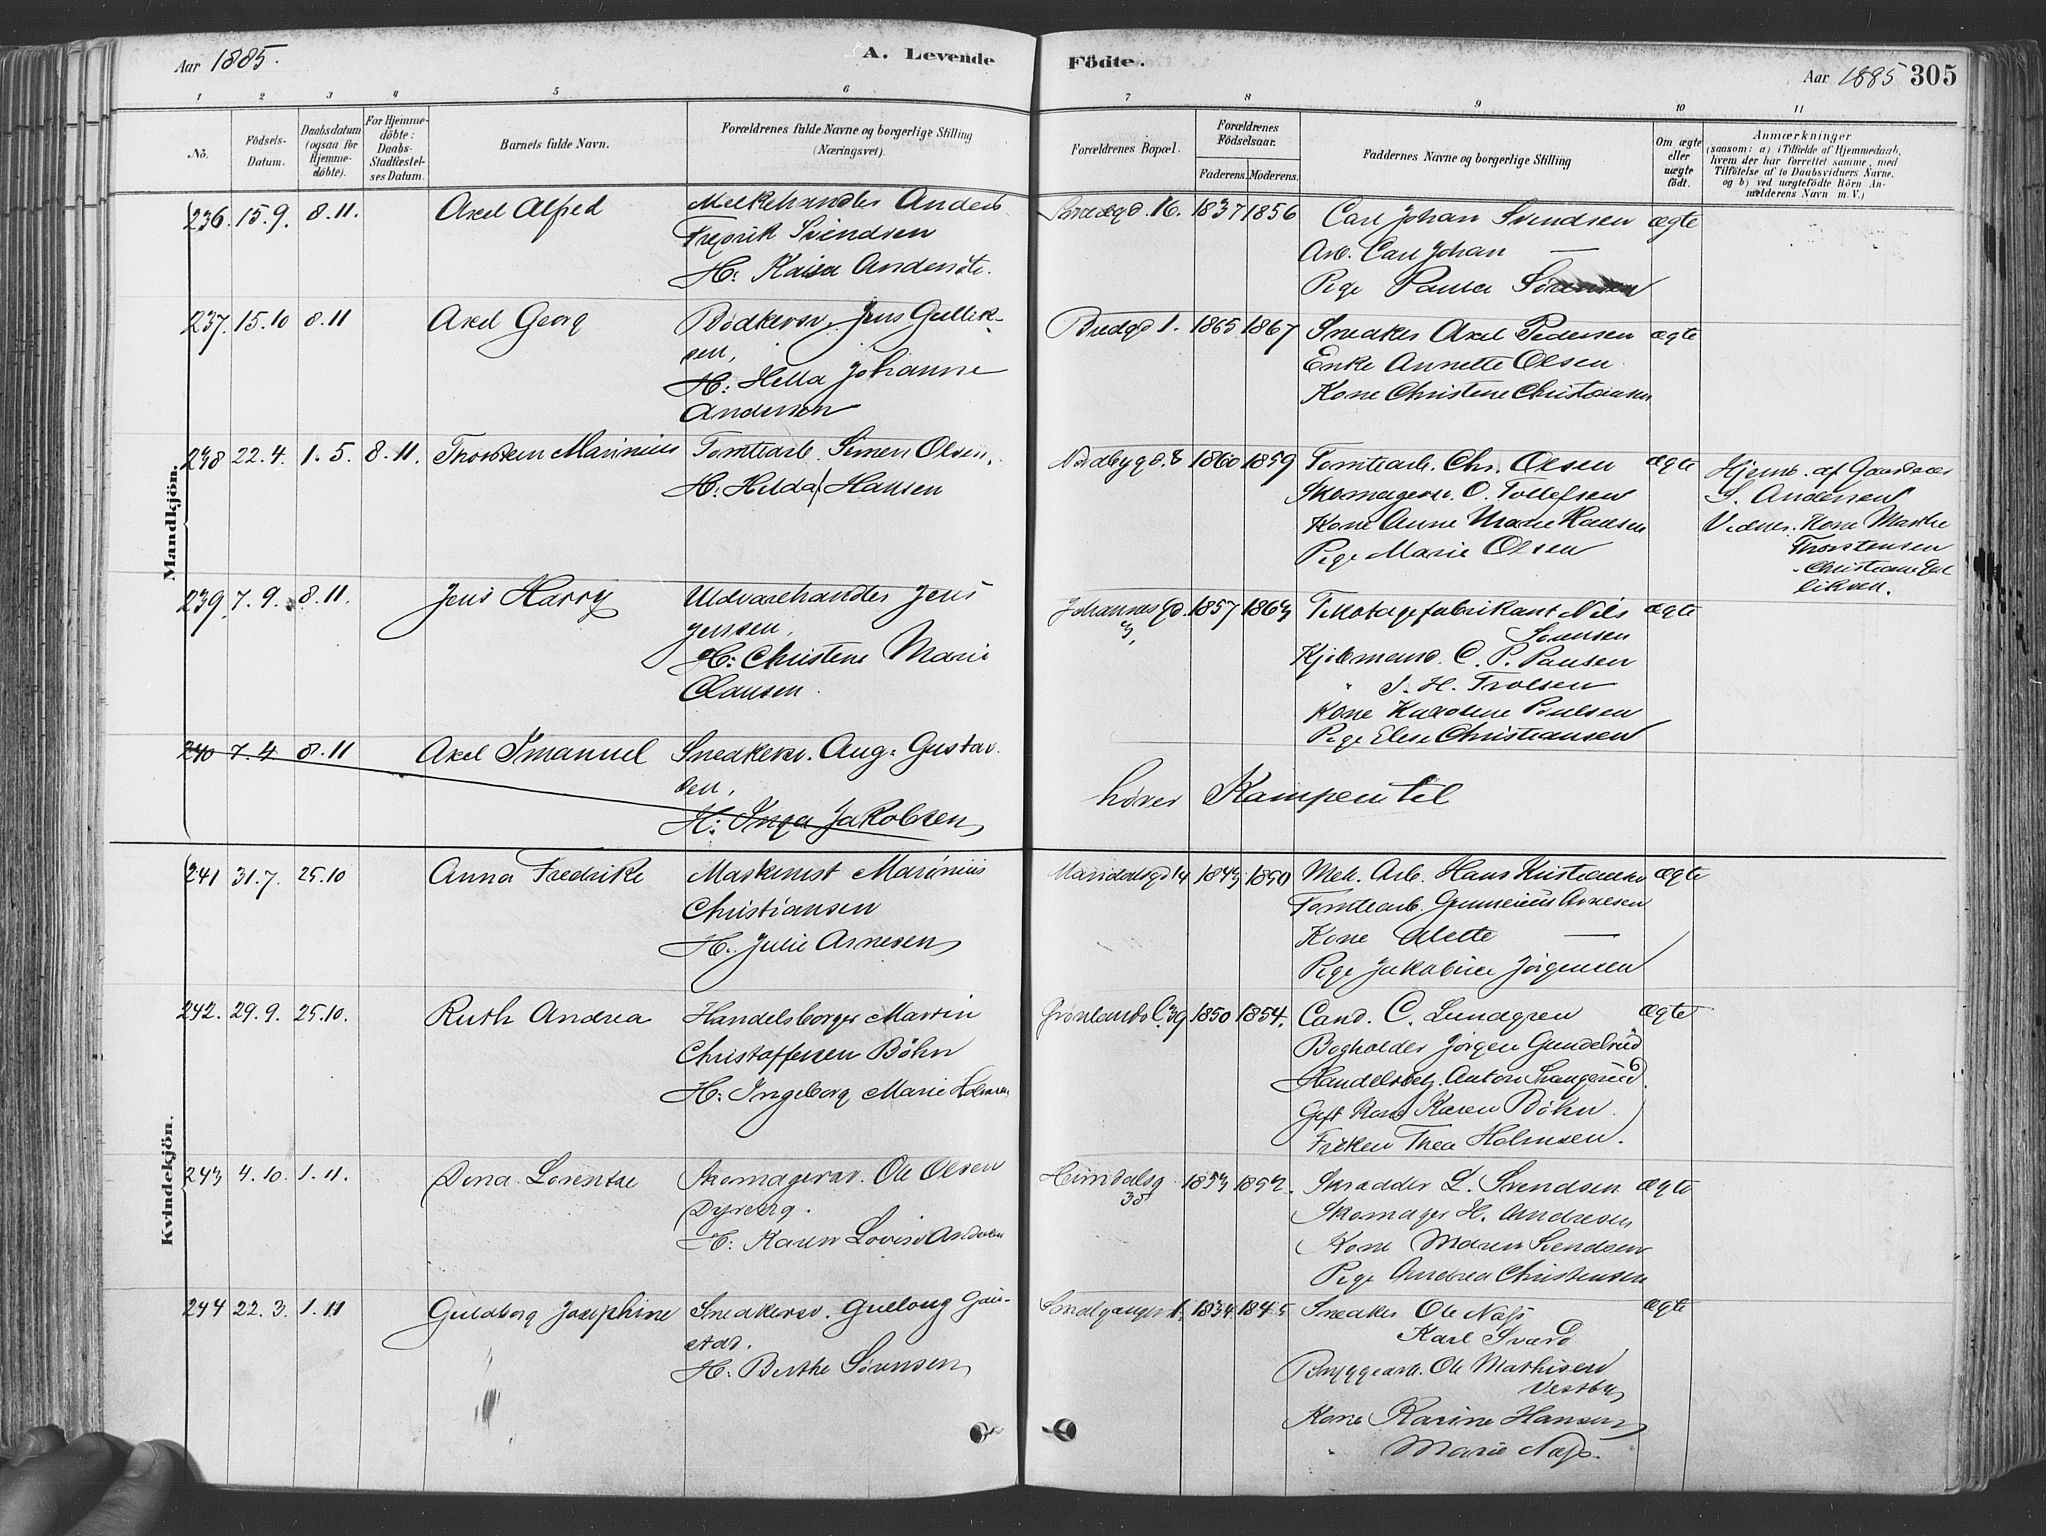 Aar 1885.
A. Levende
Födte.
Aar 1885 305
1 2 3 4 5 6 7 8 9 10 11
No.
Födsels-
Datum.
Daabsdatum
(ogsaa for
Hjemme-
döbte).
For Hjemme-
döbte:
Daabs-
Stadfæstel-
ses Datum.
Barnets fulde Navn.
Forældrenes fulde Navne og borgerlige Stilling
(Næringsvei).
Forældrenes Bopæl.
Forældrenes
Födselsaar.
Faderens. Moderens.
Faddernes Navne og borgerlige Stilling
Om ægte
eller
uægte
födt.
Anmærkninger
(saasom: a) i Tilfælde af Hjemmedaab,
hvem der har forrettet samme, med
Tilföielse af to Daabsvidners Navne,
og b) ved uægtefödte Börn An-
melderens Navn m. V.)
Mandkjön.
236. 15.9. 8.11. Axel Alfred
Melkehandler Anders
Fredrik Svendsen
H: Kaisa Andersdt.
16. 1837 1856
Carl Johan Svendsen ægte
Arb. Carl Johan —
Pige Paula Sørensen
237. 15.10 8.11 Axel Georg
Bødkersv. Jens Gullik-
sen,
H: Hella Johanne
Andersen
Bredgd 1. 1865 1867
Snedker Axel Pedersen ægte
Enke Annette Olsen
Kone Christene Christensen
238 22.4. 1.5. 8.11. Thorstein Marinius
Tomtearb. Simen Olsen,
H: Hilda Hansen
Nordbygd. 8 1860 1859
Tomtearb. Chr. Olsen ægte
Skomagersv. O. Tollefsen
Kone Anne Marie Hansen
Pige Marie Olsen
Hjemd. af
S. Andersen
Vidner. Kone Marthe
Thorstensen
Christiane Gul
liksen.
239. 7.9. 8.11. Jens Harry
Uldvarehandler Jens
Jenssen,
H: Christene Marie
Clausen.
Johannes gd. 1857 1863
3,
Trikotagefabrikant Nils ægte
Sørensen
Kjøbmand C. P. Paulsen
" S. H. Trolsen
Kone Karoline Poulsen
Pige Elise Christiansen
240 7.4. 8.11 Axel Imanuel
Snedkersv. Aug: Gustav
sen,
H: Inga Jakobsen
hører Kampen til
Kvindekjön.
241 31.7. 25.10 Anna Fredrike
Maskinist Marinius
Christiansen
H. Julie Arnesen
Maridalsgd 14 1843 1850
Mek. Arb. Hans Kristiansen ægte
Tomtearb. Arnesen
Kone Alette —
Pige Jakobine Jørgensen
242. 29.9. 25.10. Ruth Andrea
Handelsborger Martin
Christoffersen Bøhn
H: Ingeborg Marie Holmsen
Grønlandsl. 39 1850 1854.
Cand. C. Lundgren ægte
Bogholder Jørgen Gundelsrud
Handelsbetj. Anton
Gift Kone Karen Bøhn.
Frøken Thea Holmsen.
243 4.10. 1.11. Dina Lorentze
Skomagersv. Ole Olsen
Dyreberg.
H: Karen Lovise Andersen
Heimdalsg 1853 1852.
35
Skrædder L. Svendsen ægte
Skomager H. Andresen
Kone Maren Svendsen
Pige Andrea Christensen
244 22.3. 1.11 Guldborg Josephine
Snedkersv. Gullong Gau-
stad.
H: Berthe Sørensen
Smalgangen 1. 1834 1845
Snedker Ole Næss ægte
Karl Sverd
Bryggearb. Ole Mathisen
Vestby
Kone Karine Hansen
" Marie Næss.